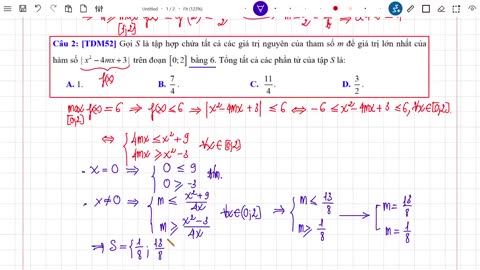 Untitled - 1 / 2
[0;2]
Câu 2: [TDM52] Gọi S là tập hợp chứa tất cả các giá trị nguyên của tham số m để giá trị lớn nhất của
hàm số | x² − 4mx + 3 | trên đoạn [0;2] bằng 6. Tổng tất cả các phần tử của tập S là:
f(x)
A. 1. B. 7/4. C. 11/4. D. 3/2.
max f(x) = 6 ⇒ f(x) ≤ 6 ⇒ |x² − 4mx + 3| ≤ 6 ⇔ −6 ≤ x² − 4mx + 3 ≤ 6, ∀x∈[0;2].
[0;2]
⇔ { 4mx ≤ x² + 9
4mx ≥ x² − 3 ∀x∈[0;2]
• x = 0 ⇒ { 0 ≤ 9
0 ≥ −3 t/m.
• x ≠ 0 ⇒ { m ≤ (x² + 9)/4x
m ≥ (x² − 3)/4x ∀x∈(0;2] ⇒ { m ≤ 13/8
m ≥ 1/8 → [ m = 13/8
m = 1/8
⇒ S = {1/8 ; 13/8